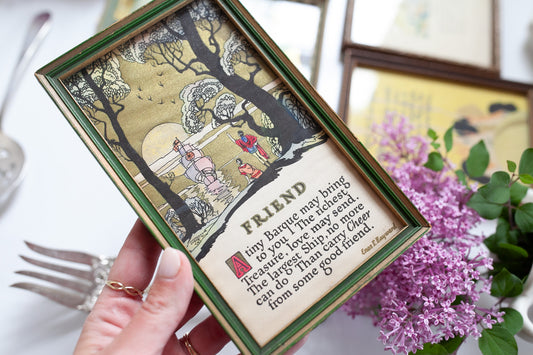 FRIEND
A tiny Barque may bring
to you The richest
Treasure, love may send.
The largest Ship, no more
can do Than carry Cheer
from some good friend.